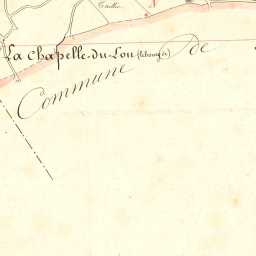 La Chapelle-du-Lou
Commune de